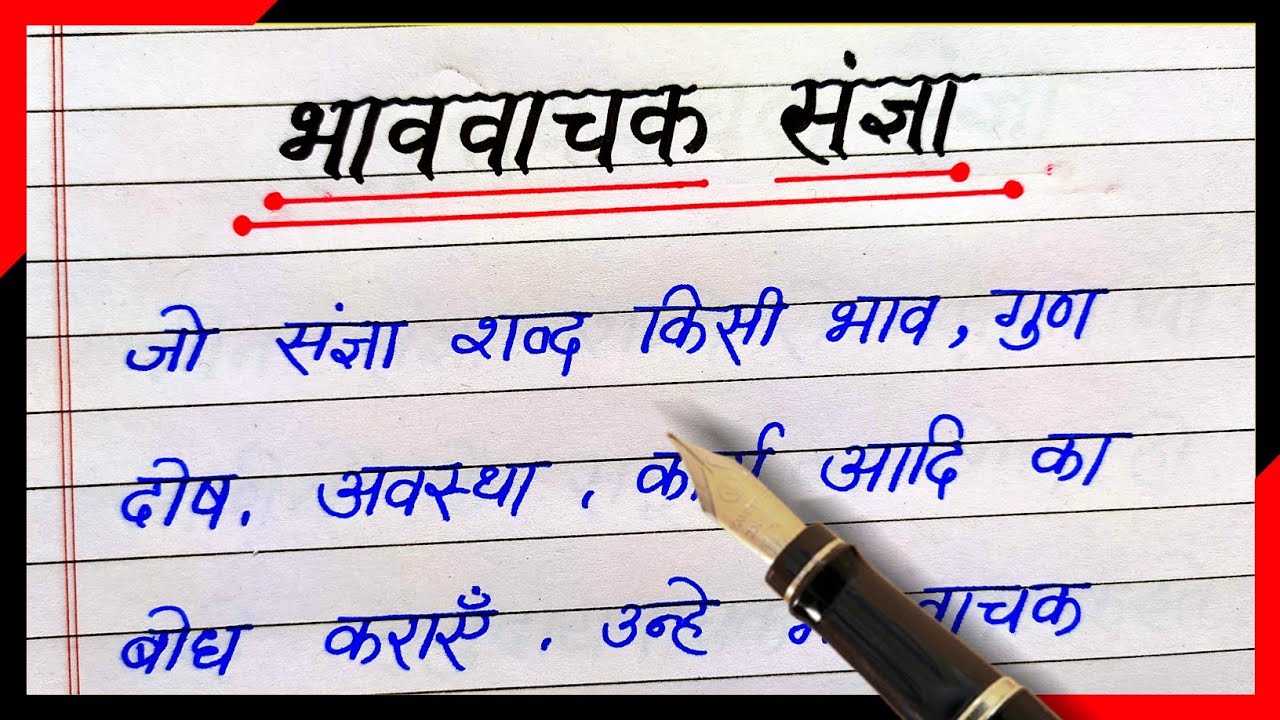 भाववाचक संज्ञा
जो संज्ञा शब्द किसी भाव, गुण
दोष. अवस्था . आदि का
बोध कराएँ . उन्हे